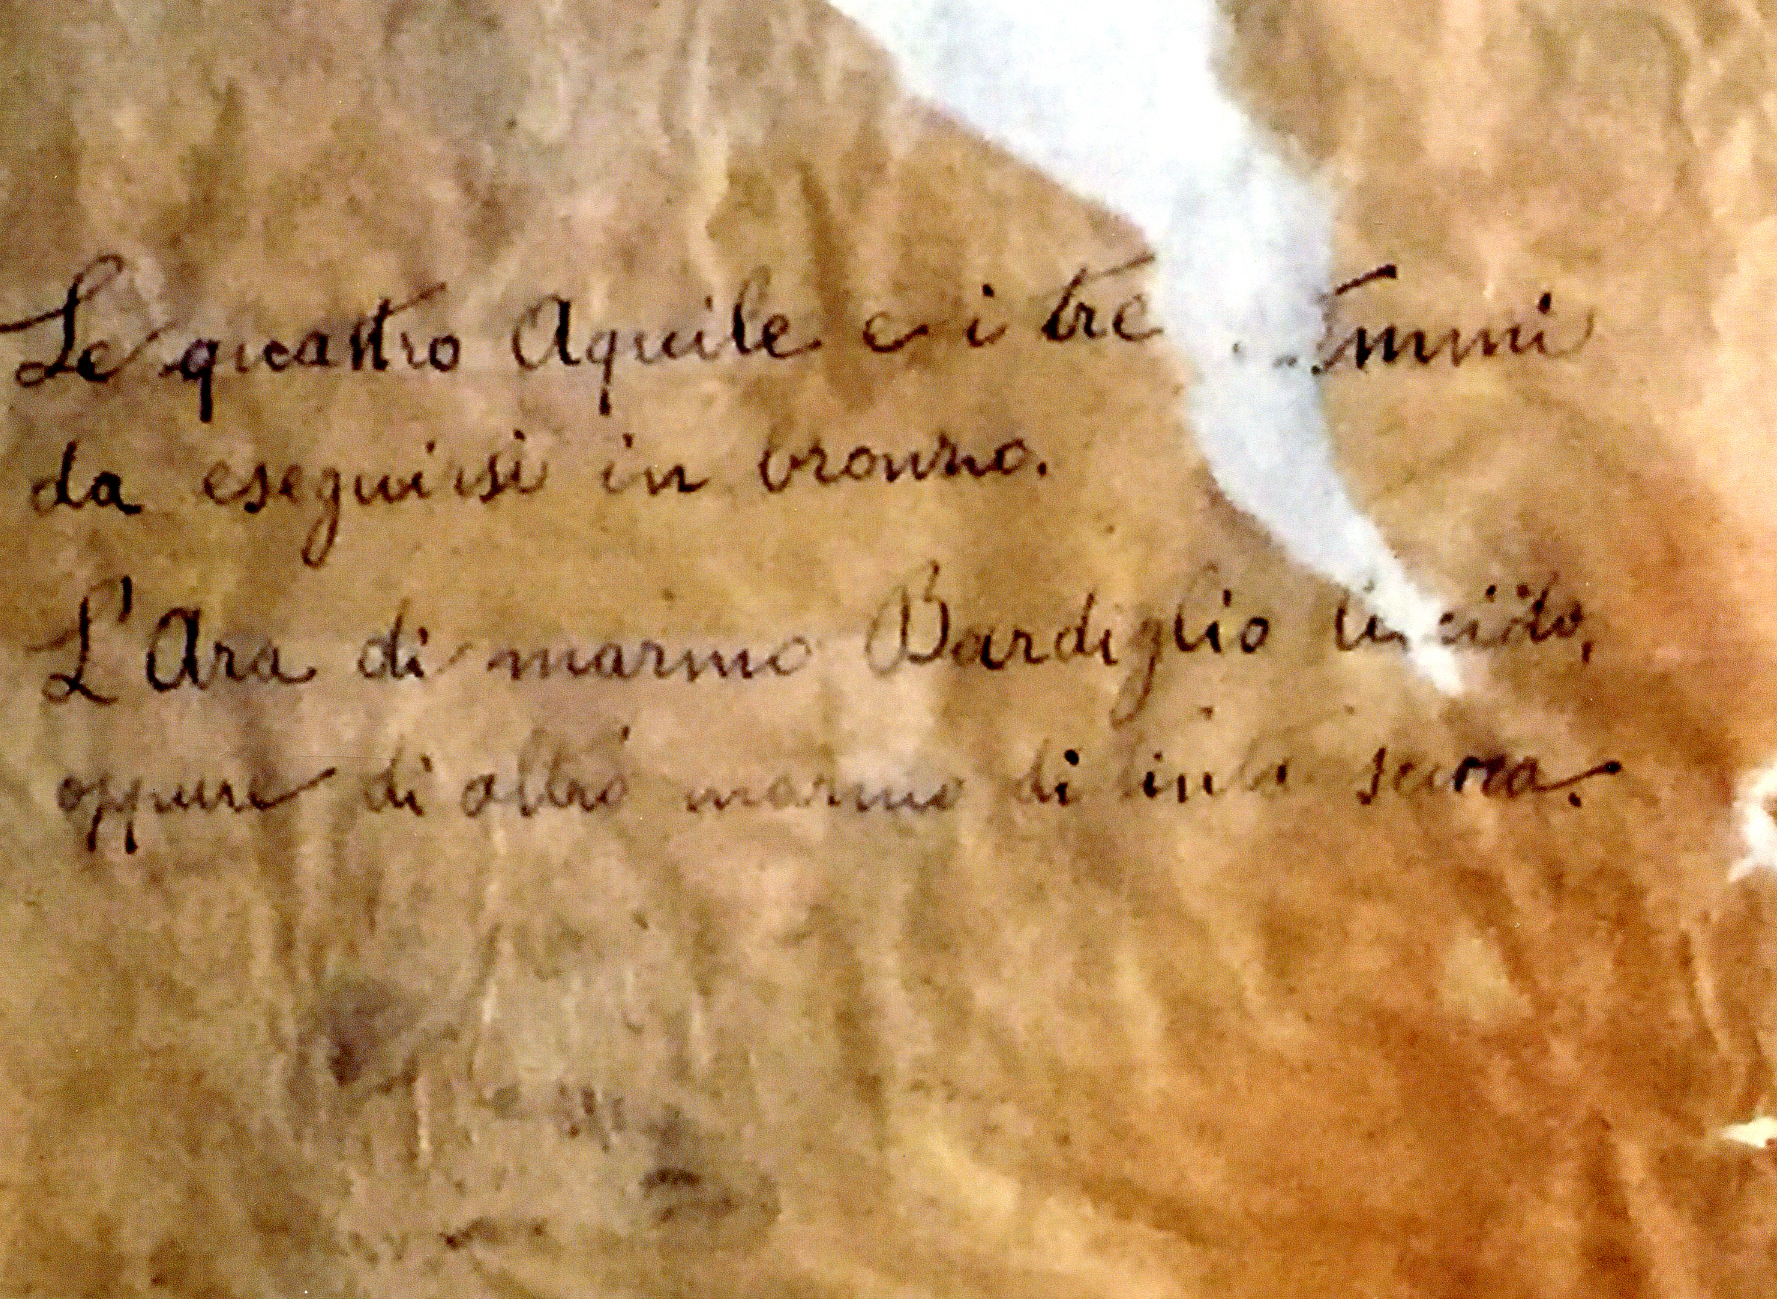 Le quattro Aquile e i tre
da eseguirsi in bronzo.
L'Ara di marmo Bardiglio lucido,
oppure di altro marmo di tinta scura.